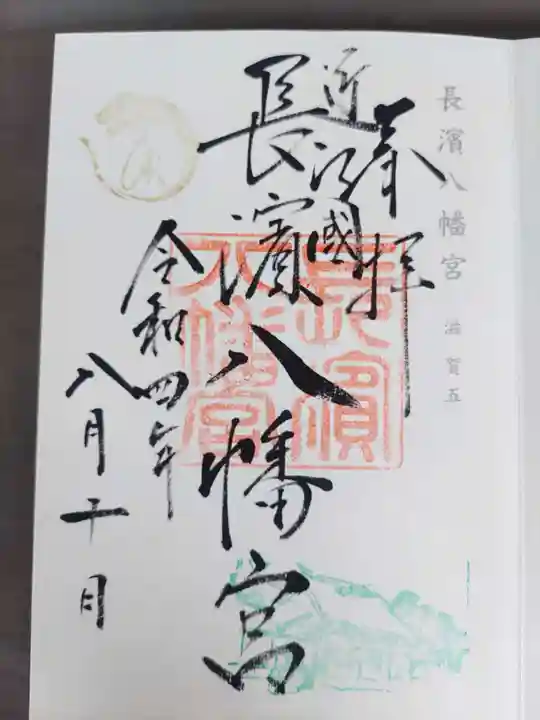 長濱八幡宮 滋賀五
奉拝
近江國
長濱八幡宮
長濱八幡宮
令和四年
八月十日